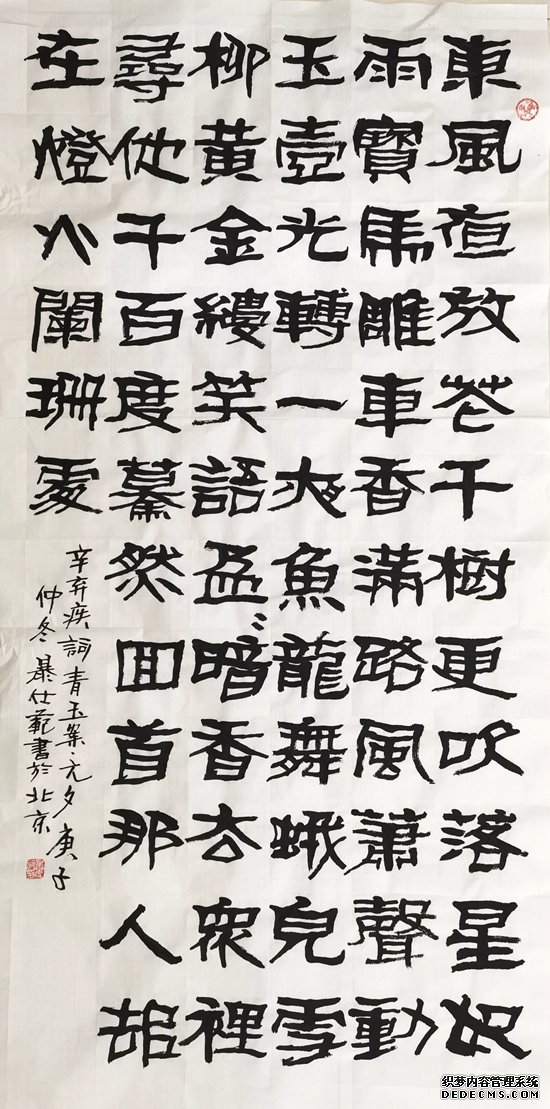 東風夜放花千樹更吹落星如
雨寶馬雕車香滿路風蕭聲動
玉壺光轉一夜魚龍舞蛾兒雪
柳黃金縷笑語盈〻暗香去衆裡
尋他千百度驀然回首那人却
在燈火闌珊處
辛弃疾詞青玉案·元夕庚子
仲冬暴仕範書於北京
织梦内容管理系统
DEDECMS.COM